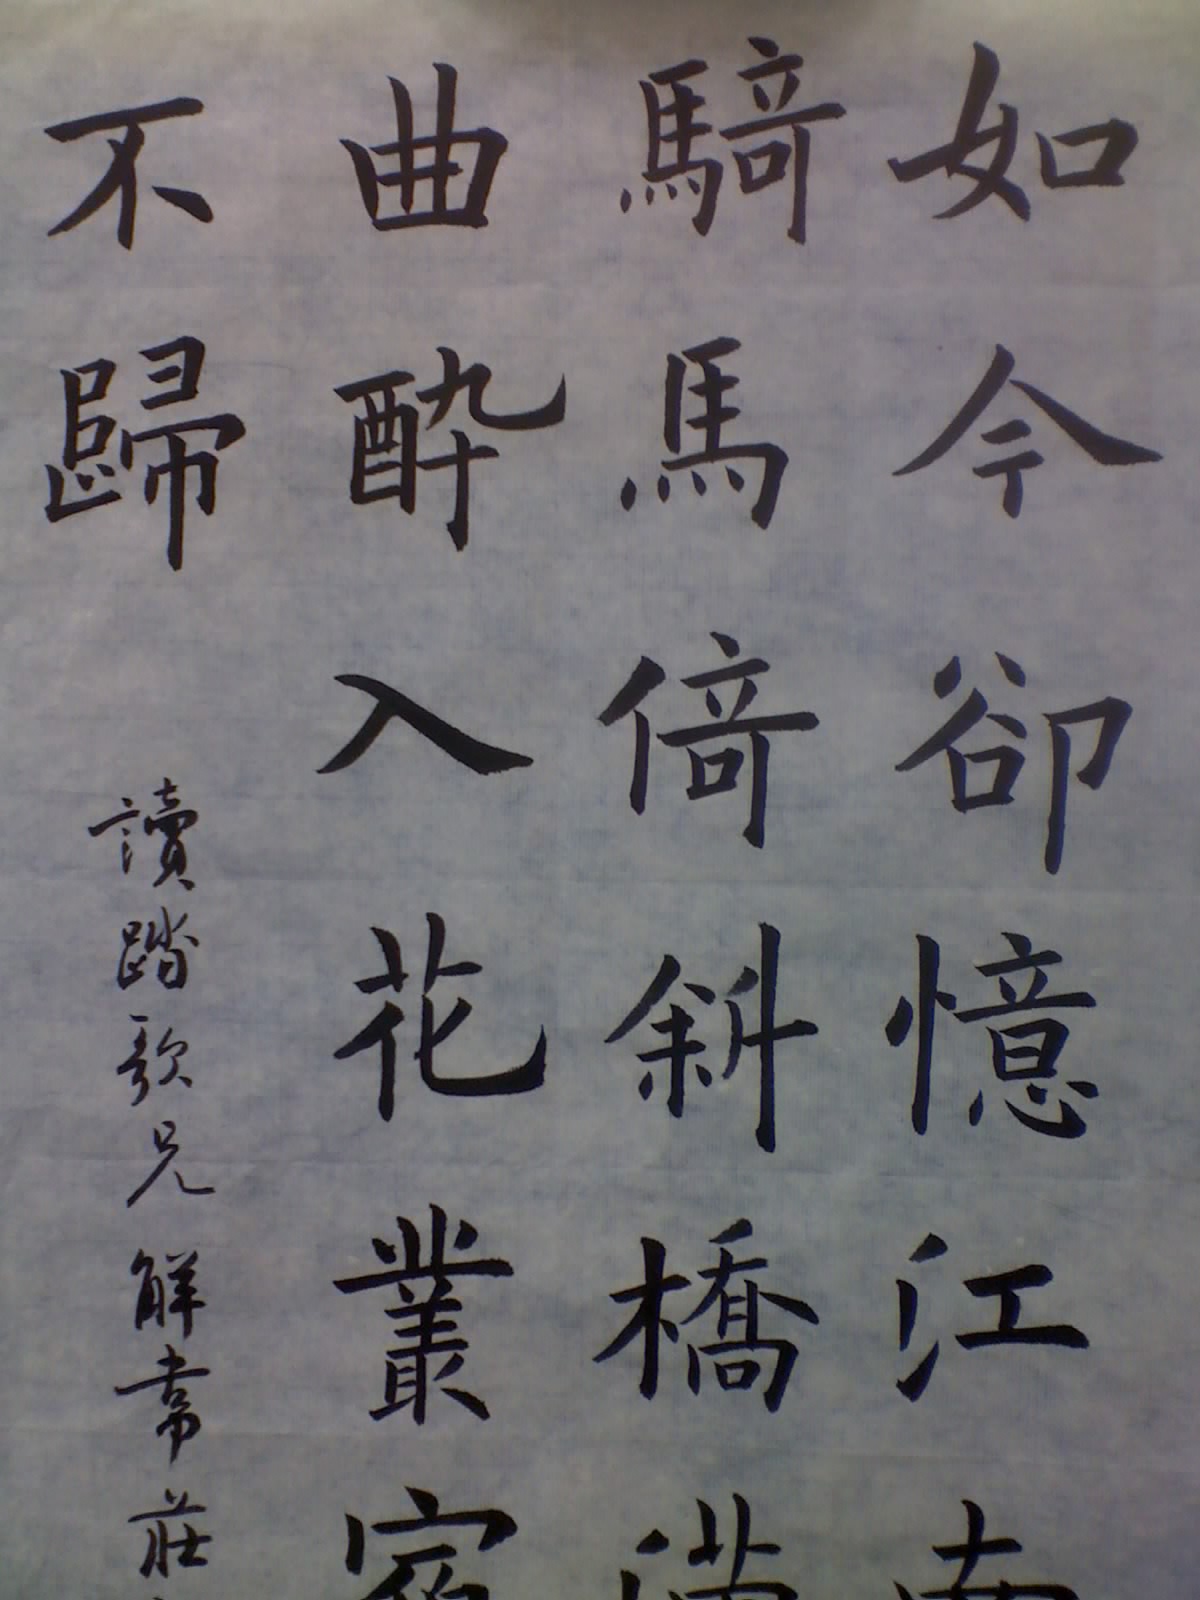 如今卻憶江南
騎馬倚斜橋滿
曲酔入花叢宿
不歸
讀踏歌兄解韋莊